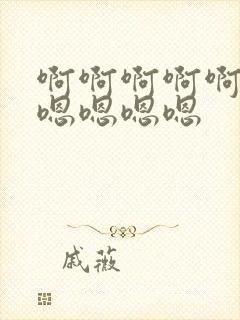 啊啊啊啊啊
嗯嗯嗯嗯
戚薇